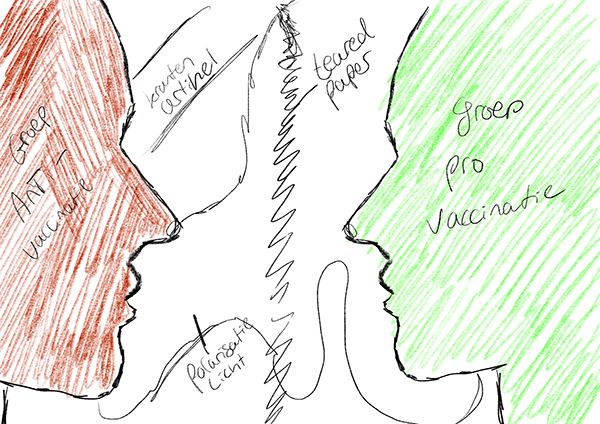 Groep
ANTI-
vaccinatie
kranten
artikel
teared
paper
groep
pro
vaccinatie
Polarisatie
Licht